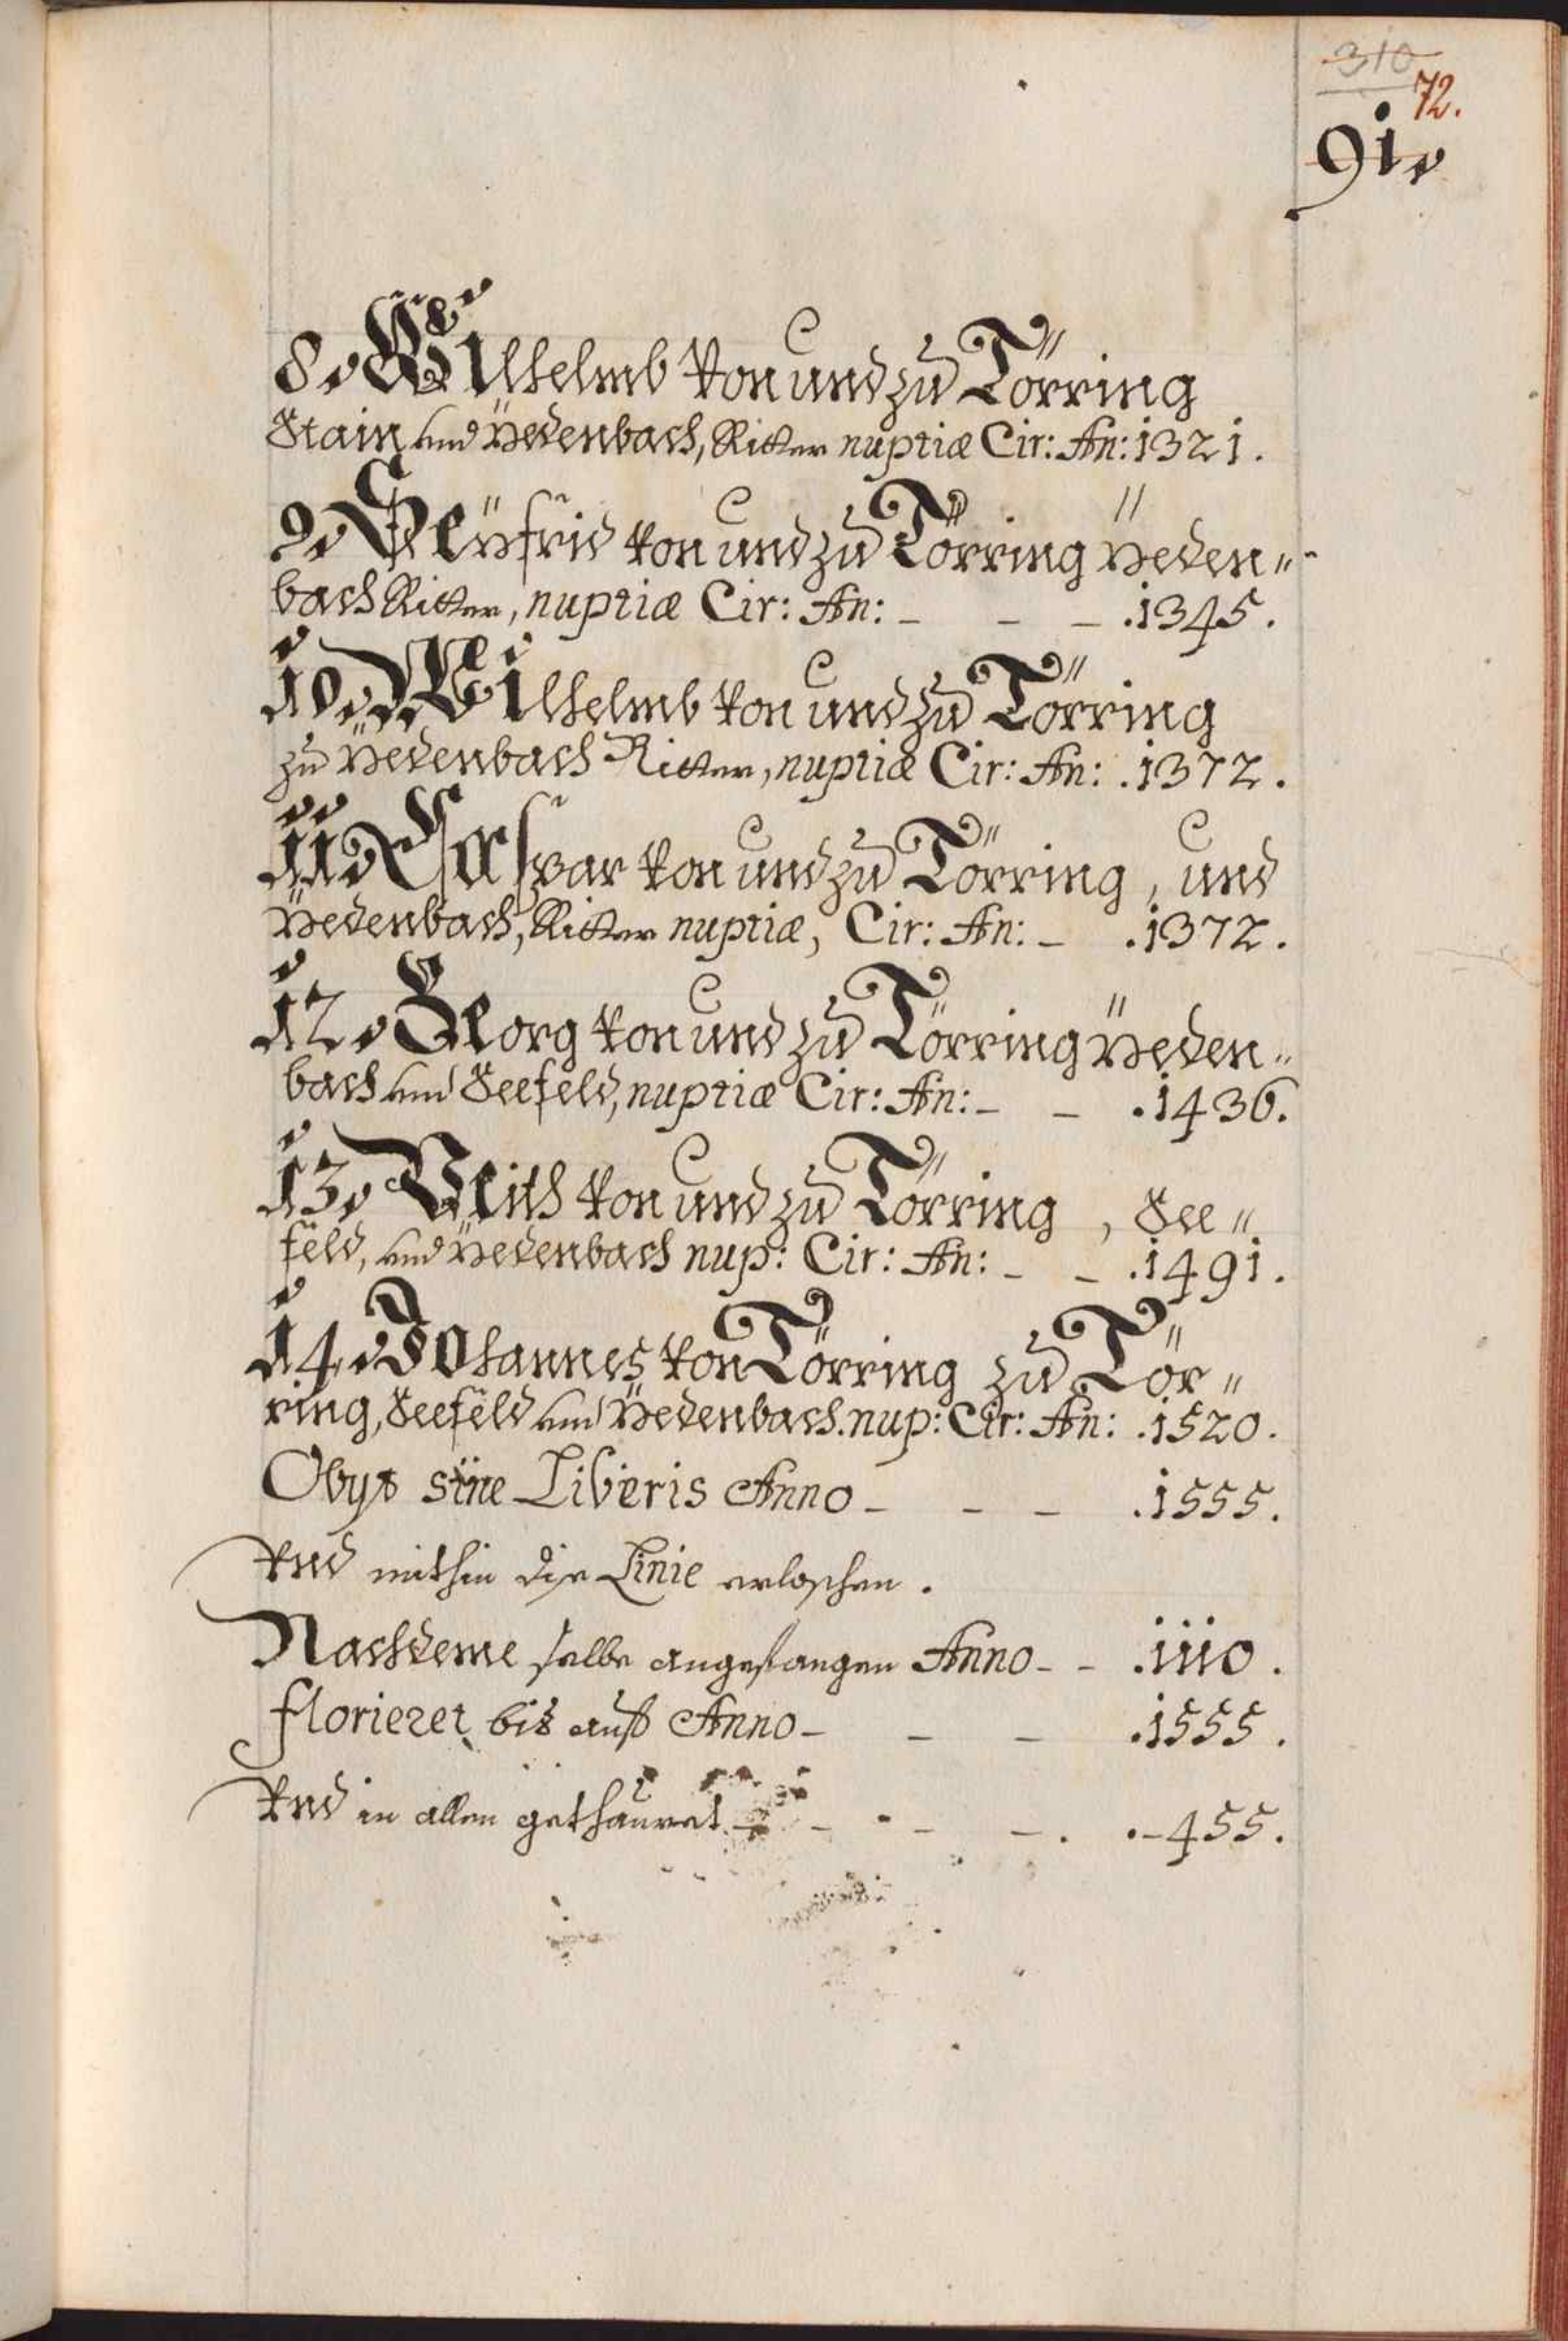 310
72.
91.
8. Wilhelmb von und zu Törring
Stain und Yedenbach, Ritter nuptiæ Cir: An: 1321.
9. Seÿfrid von und zu Törring Yeden„
bach Ritter, nuptiæ Cir: An: – – – .1345.
10. Wilhelmb von und zu Törring
zu Yedenbach Ritter, nuptiæ Cir: An: .1372.
11. Caspar von und zu Törring, und
Yedenbach, Ritter nuptiæ, Cir: An: – .1372.
12. Georg von und zu Törring Yeden„
bach und Seefeld, nuptiæ Cir: An: – – .1436.
13. Veith von und zu Törring, See„
feld, und Yedenbach nup: Cir: An: – – .1491.
14. Johannes von Törring zu Tör„
ring, Seefeld und Yedenbach. nup: Cir: An: .1520.
Obyt sine Liberis Anno – – – .1555.
Vnd mithin die Linie erloschen.
Nachdeme selbe angefangen Anno – – .1110.
florieret bis auff Anno – – – .1555.
Vnd in allen gethauret – – – – . .–455.